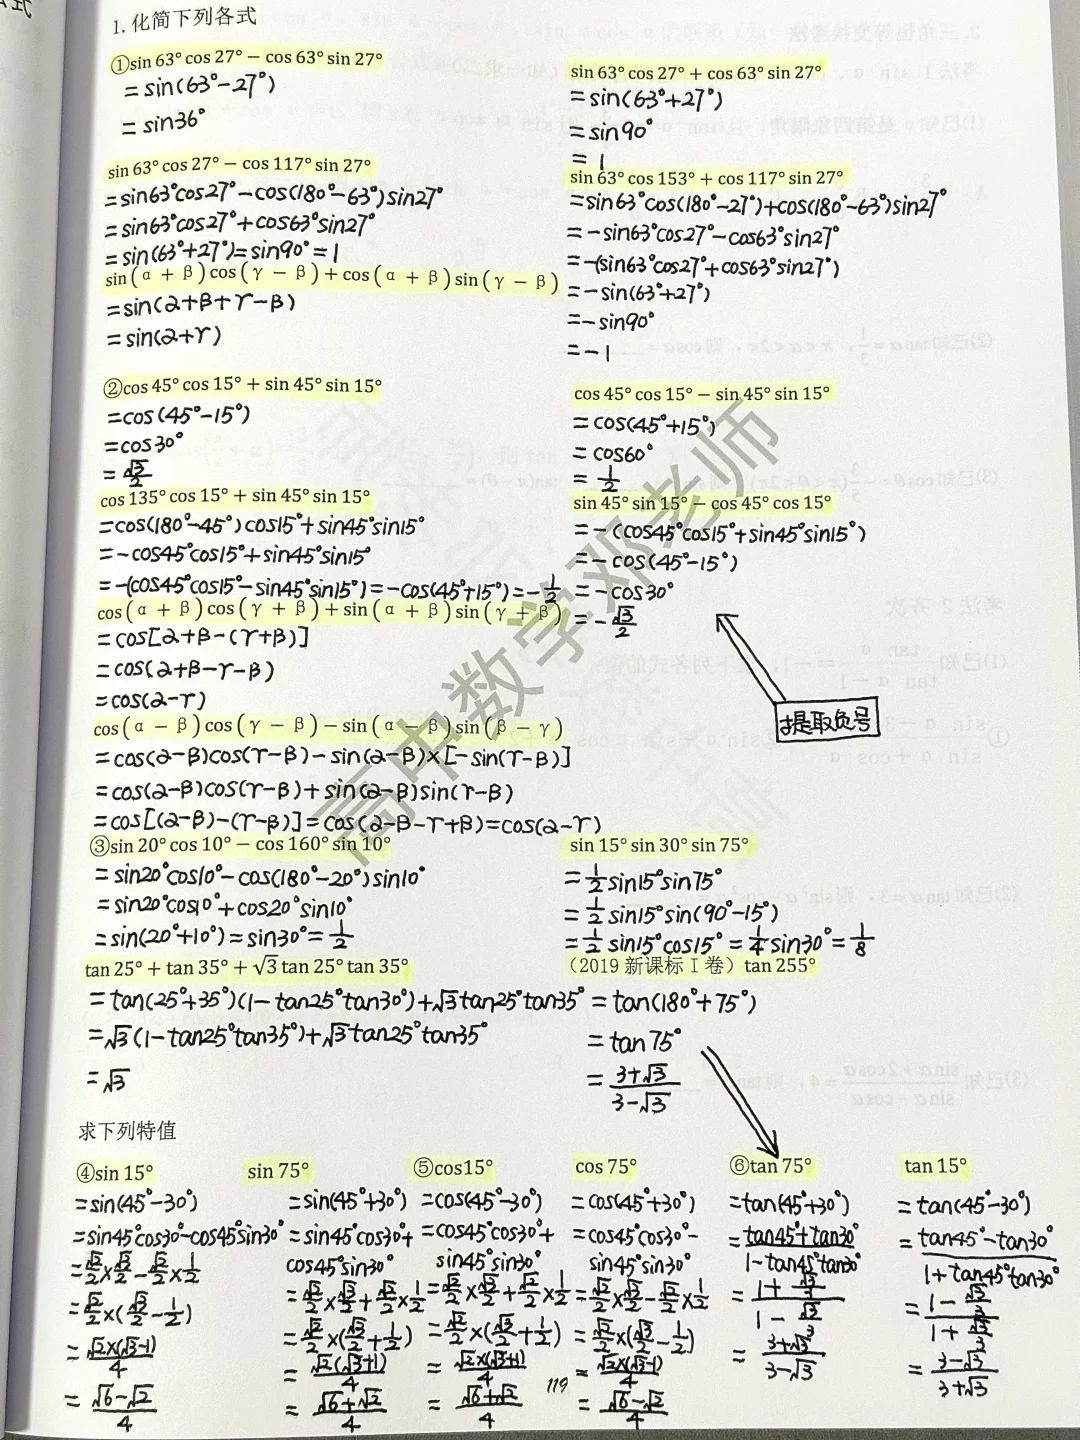 1. 化简下列各式
①sin 63° cos 27° − cos 63° sin 27°
= sin(63°−27°)
= sin36°
sin 63° cos 27° + cos 63° sin 27°
= sin(63°+27°)
= sin90°
= 1
sin 63° cos 27° − cos 117° sin 27°
= sin63°cos27° − cos(180°−63°)sin27°
= sin63°cos27° + cos63°sin27°
= sin(63°+27°) = sin90° = 1
sin 63° cos 153° + cos 117° sin 27°
= sin63°cos(180°−27°)+cos(180°−63°)sin27°
= −sin63°cos27° − cos63°sin27°
= −(sin63°cos27°+cos63°sin27°)
= −sin(63°+27°)
= −sin90°
= −1
sin(α + β)cos(γ − β) + cos(α + β)sin(γ − β)
= sin(α+β+γ−β)
= sin(α+γ)
②cos 45° cos 15° + sin 45° sin 15°
= cos(45°−15°)
= cos30°
= √3/2
cos 45° cos 15° − sin 45° sin 15°
= cos(45°+15°)
= cos60°
= 1/2
cos 135° cos 15° + sin 45° sin 15°
= cos(180°−45°)cos15°+sin45°sin15°
= −cos45°cos15°+sin45°sin15°
= −(cos45°cos15°−sin45°sin15°) = −cos(45°+15°) = −1/2
sin 45° sin 15° − cos 45° cos 15°
= −(cos45°cos15°+sin45°sin15°)
= −cos(45°−15°)
= −cos30°
= −√3/2
提取负号
cos(α + β)cos(γ + β) + sin(α + β)sin(γ + β)
= cos[α+β−(γ+β)]
= cos(α+β−γ−β)
= cos(α−γ)
cos(α − β)cos(γ − β) − sin(α − β)sin(β − γ)
= cos(α−β)cos(γ−β) − sin(α−β)×[−sin(γ−β)]
= cos(α−β)cos(γ−β) + sin(α−β)sin(γ−β)
= cos[(α−β)−(γ−β)] = cos(α−β−γ+β) = cos(α−γ)
③sin 20° cos 10° − cos 160° sin 10°
= sin20°cos10° − cos(180°−20°)sin10°
= sin20°cos10° + cos20°sin10°
= sin(20°+10°) = sin30° = 1/2
sin 15° sin 30° sin 75°
= 1/2 sin15°sin75°
= 1/2 sin15°sin(90°−15°)
= 1/2 sin15°cos15° = 1/4 sin30° = 1/8
tan 25° + tan 35° + √3 tan 25° tan 35°
= tan(25°+35°)(1−tan25°tan30°)+√3tan25°tan35°
= √3(1−tan25°tan35°)+√3tan25°tan35°
= √3
（2019 新课标 I 卷）tan 255°
= tan(180°+75°)
= tan75°
= 3+√3/3−√3
求下列特值
④sin 15°
= sin(45°−30°)
= sin45°cos30°−cos45°sin30°
= √2/2×√3/2−√2/2×1/2
= √2/2×(√3/2−1/2)
= √2×(√3−1)/4
= √6−√2/4
sin 75°
= sin(45°+30°)
= sin45°cos30°+
cos45°sin30°
= √2/2×√3/2+√2/2×1/2
= √2/2×(√3/2+1/2)
= √2(√3+1)/4
= √6+√2/4
⑤cos15°
= cos(45°−30°)
= cos45°cos30°+
sin45°sin30°
= √2/2×√3/2+√2/2×1/2
= √2/2×(√3/2+1/2)
= √2×(√3+1)/4
= √6+√2/4
cos 75°
= cos(45°+30°)
= cos45°cos30°−
sin45°sin30°
= √2/2×√3/2−√2/2×1/2
= √2/2×(√3/2−1/2)
= √2×(√3−1)/4
= √6−√2/4
⑥tan 75°
= tan(45°+30°)
= tan45°+tan30°/1−tan45°tan30°
= 1+√3/3/1−√3/3
= 3+√3/3−√3
tan 15°
= tan(45°−30°)
= tan45°−tan30°/1+tan45°tan30°
= 1−√3/3/1+√3/3
= 3−√3/3+√3
119
高中数学邓老师